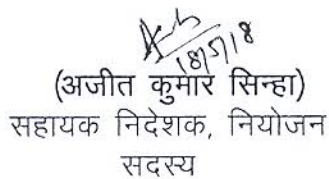 18/5/18
(अजीत कुमार सिन्हा)
सहायक निदेशक, नियोजन
सदस्य